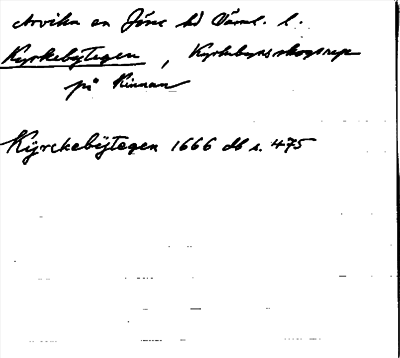 Arvika en Jöse hd Värml. l.
Kyrkebytegen, Kyrkebyns skogsrep
på Kinnan
Kÿrckebÿtegen 1666 db s. 475